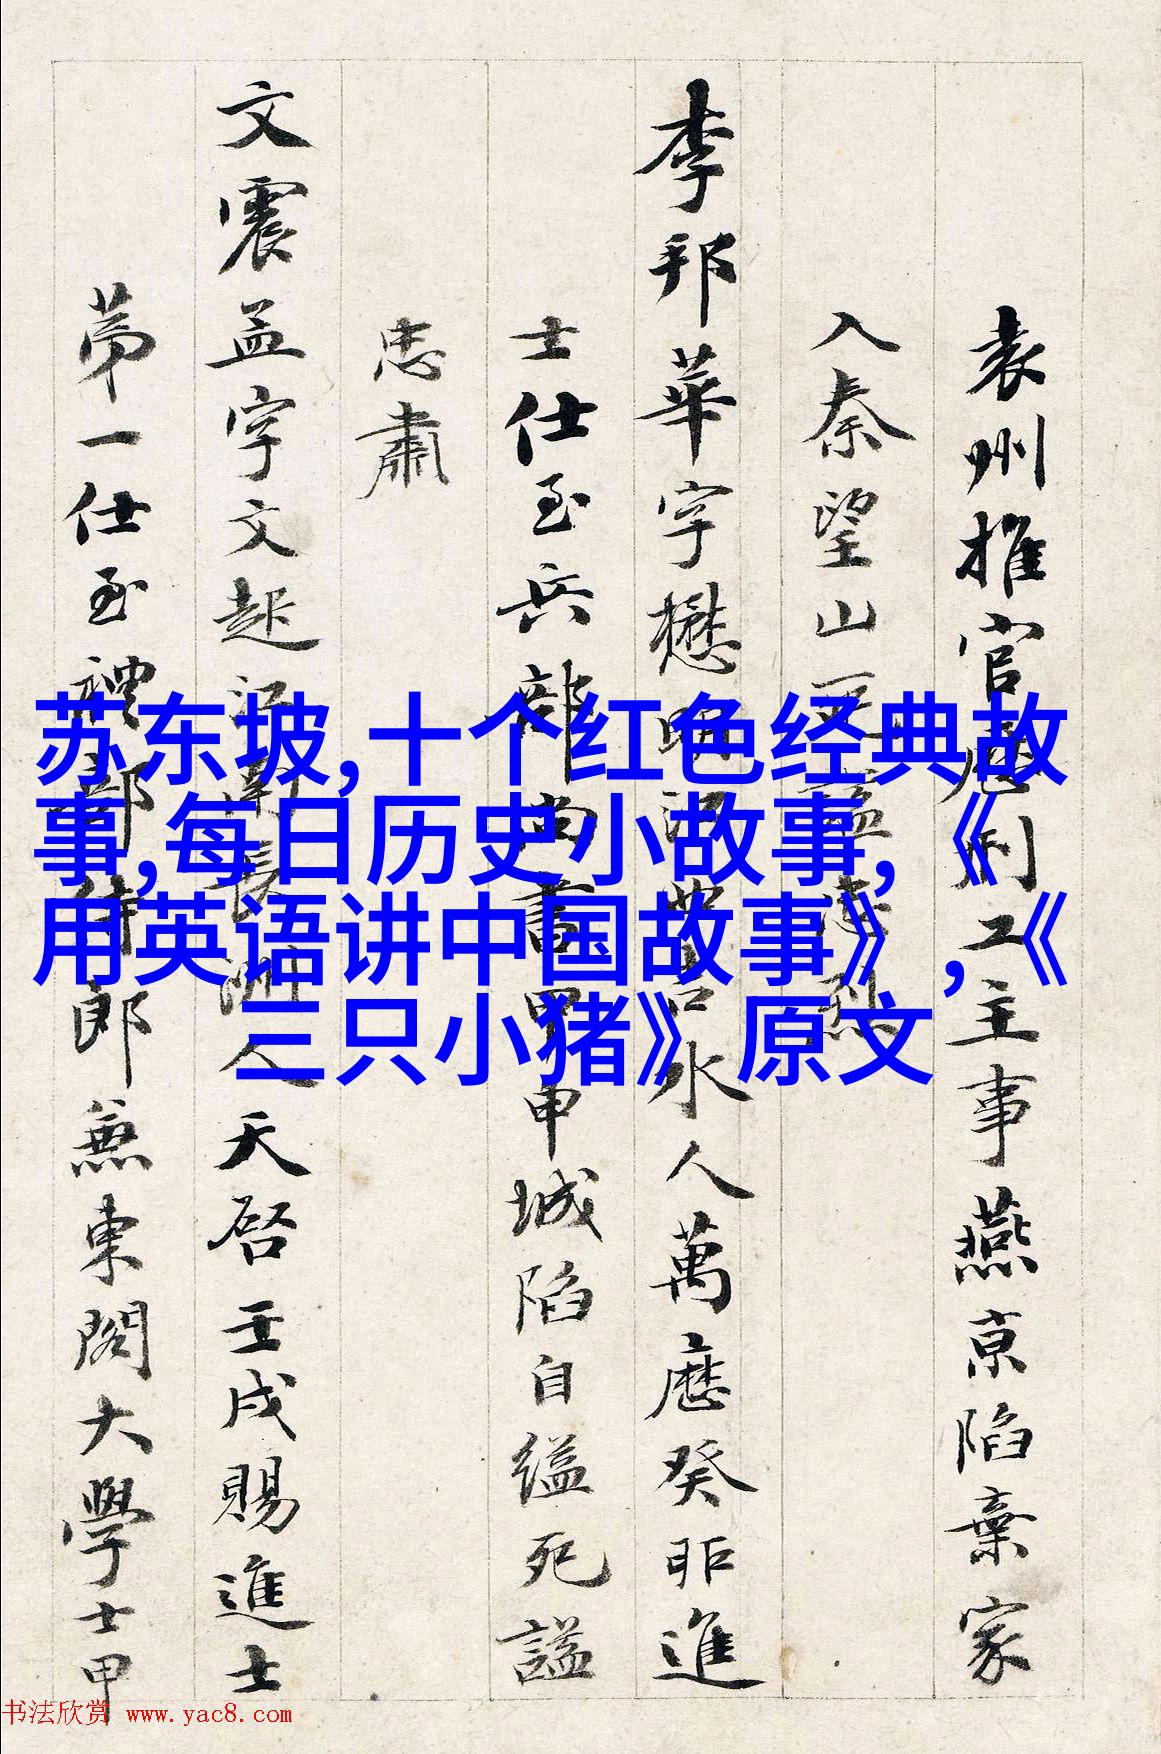 袁州推官歷刑工主事燕京陷棄家
入秦望山
李邦華字懋明江西吉水人萬曆癸卯進
士仕至兵部尚書甲申城陷自縊死謚
忠肅
文震孟字文起江南長洲人天啓壬戌賜進士
第一仕至禮部侍郎兼東閣大學士甲
苏东坡,十个红色经典故
事,每日历史小故事,《
用英语讲中国故事》,《
三只小猪》原文
书法欣赏 www.yac8.com